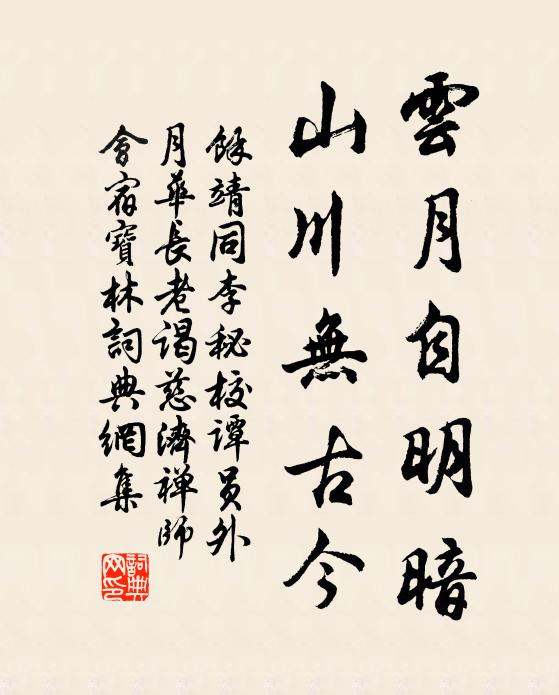 雲月自明暗
山川無古今
餘靖同李秘校譚員外
月華長老謁慈濟禅師
會宿寶林詞典網集
詞典
网印